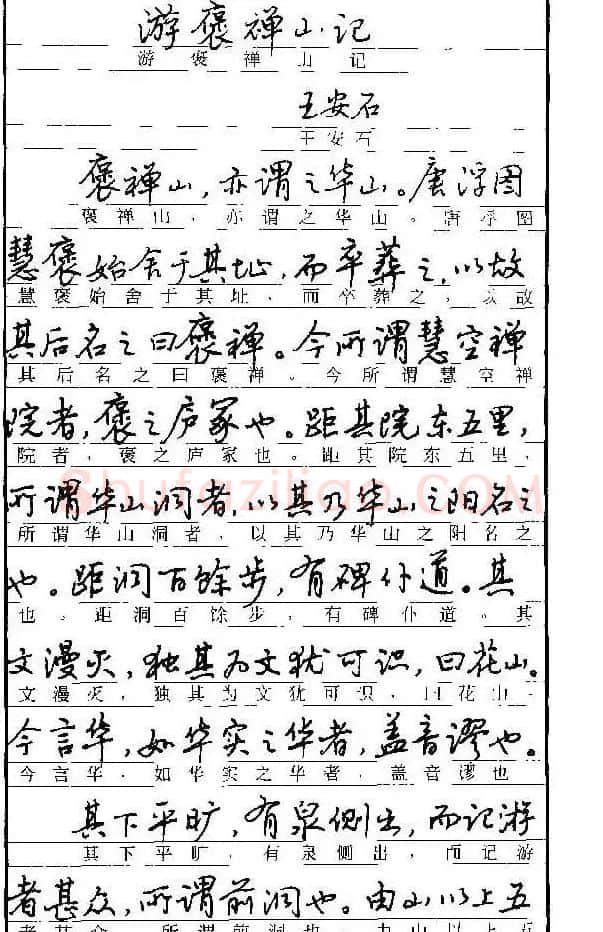 游褒禅山记
游褒禅山记
王安石
王安石
褒禅山，亦谓之华山。唐浮图
褒禅山，亦谓之华山。唐浮图
慧褒始舍于其址，而卒葬之，以故
慧褒始舍于其址，而卒葬之，以故
其后名之曰褒禅。今所谓慧空禅
其后名之曰褒禅。今所谓慧空禅
院者，褒之庐冢也。距其院东五里，
院者，褒之庐冢也。距其院东五里，
Shufaziliao.COM
所谓华山洞者，以其乃华山之阳名之
所谓华山洞者，以其乃华山之阳名之
也。距洞百馀步，有碑仆道。其
也。距洞百馀步，有碑仆道。其
文漫灭，独其为文犹可识，曰花山。
文漫灭，独其为文犹可识，曰花山
今言华，如华实之华者，盖音谬也。
今言华，如华实之华者，盖音谬也
其下平旷，有泉侧出，而记游
其下平旷，有泉侧出，而记游
者甚众，所谓前洞也。由山以上五
者甚众，所谓前洞也。由山以上五